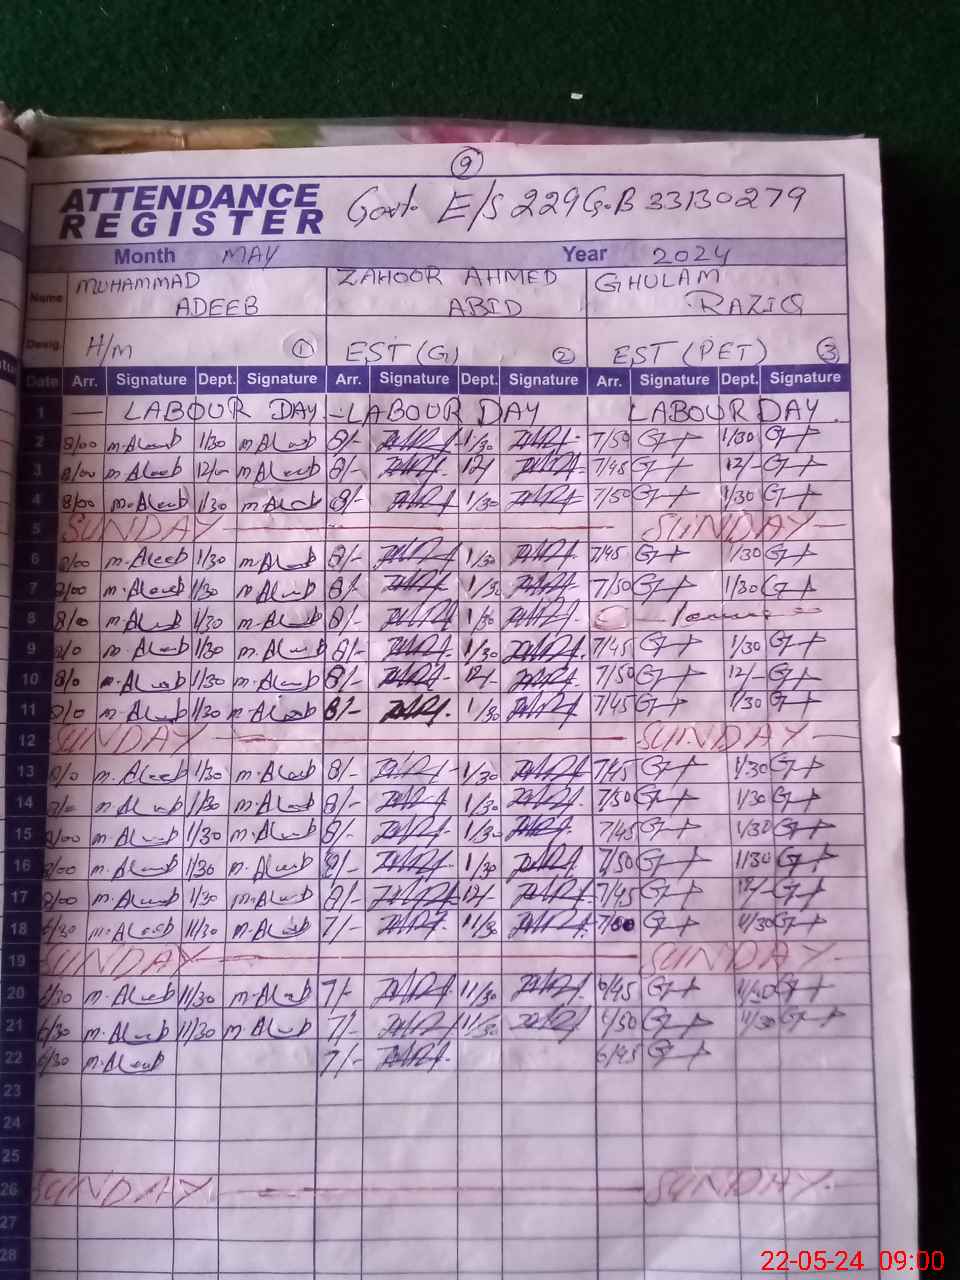 9
ATTENDANCE
REGISTER
Govt. E/S 229 G.B 33130279
Month MAY Year 2024
Name MUHAMMAD ADEEB ZAHOOR AHMED ABID GHULAM RAZIQ
Desig. H/M 1 EST (G) 2 EST (PET) 3
Date Arr. Signature Dept. Signature Arr. Signature Dept. Signature Arr. Signature Dept. Signature
1 — LABOUR DAY - LABOUR DAY LABOUR DAY
2 8/00 m.Aleeb 1/30 m.Aleeb 8/- 1/30 7/50 1/30
3 8/00 m.Aleeb 12/00 m.Aleeb 8/- 12/- 7/45 12/-
4 8/00 m.Aleeb 1/30 m.Aleeb 8/- 1/30 7/50 1/30
5 SUNDAY SUNDAY
6 8/00 m.Aleeb 1/30 m.Aleeb 8/- 1/30 7/45 1/30
7 8/00 m.Aleeb 1/30 m.Aleeb 8/- 1/30 7/50 1/30
8 8/00 m.Aleeb 1/30 m.Aleeb 8/- 1/30
9 8/0 m.Aleeb 1/30 m.Aleeb 8/- 1/30 7/45 1/30
10 8/0 m.Aleeb 1/30 m.Aleeb 8/- 12/- 7/50 12/-
11 8/0 m.Aleeb 1/30 m.Aleeb 8/- 1/30 7/45 1/30
12 SUNDAY SUNDAY
13 8/0 m.Aleeb 1/30 m.Aleeb 8/- 1/30 7/45 1/30
14 m.Aleeb 1/30 m.Aleeb 8/- 1/30 7/50 1/30
15 8/00 m.Aleeb 1/30 m.Aleeb 8/- 1/30 7/45 1/30
16 8/00 m.Aleeb 1/30 m.Aleeb 8/- 1/30 7/50 1/30
17 8/00 m.Aleeb 1/30 m.Aleeb 8/- 12/- 7/45 12/-
18 6/30 m.Aleeb 11/30 m.Aleeb 7/- 11/30 11/30
19 SUNDAY SUNDAY
20 6/30 m.Aleeb 11/30 m.Aleeb 7/- 11/30 6/45
21 6/30 m.Aleeb 11/30 m.Aleeb 7/- 11/30 6/50 11/30
22 6/30 m.Aleeb 7/- 6/45
23
24
25
26 SUNDAY SUNDAY
27
28
22-05-24 09:00